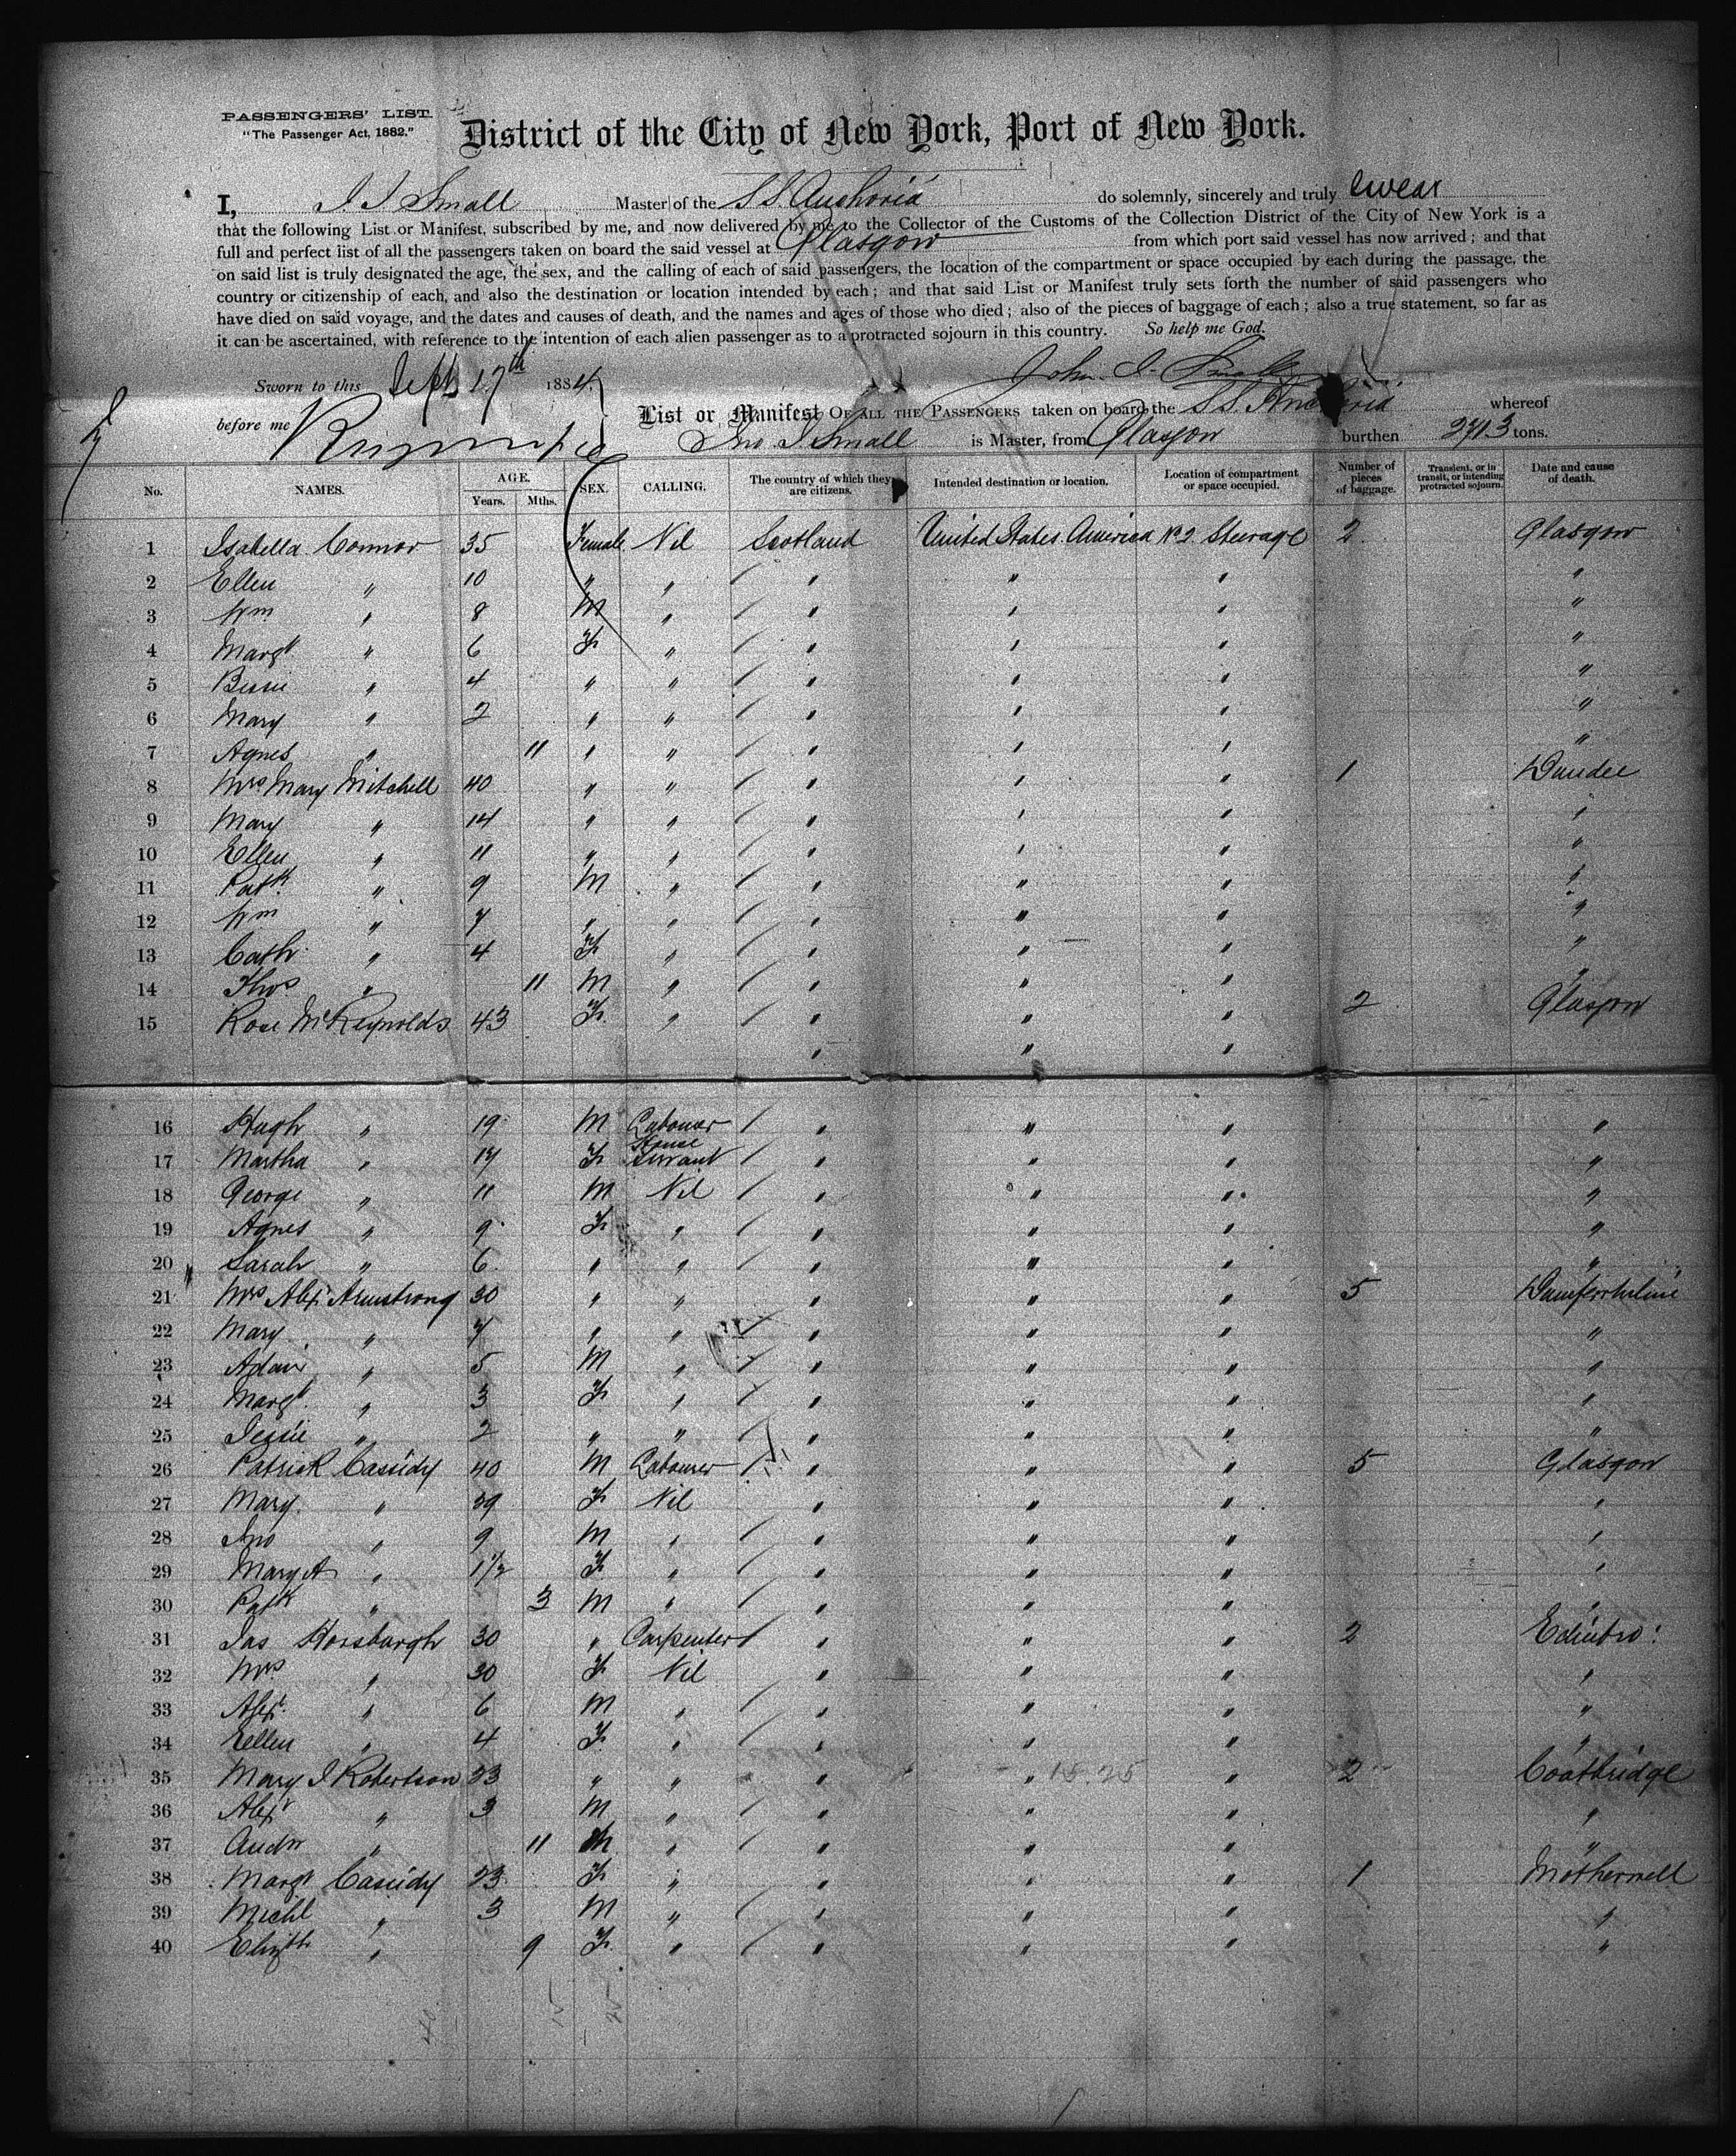 PASSENGERS' LIST.
"The Passenger Act, 1882."
District of the City of New York, Port of New York.
I, J. J. Small Master of the S.S. Anchoria do solemnly, sincerely and truly swear
that the following List or Manifest, subscribed by me, and now delivered by me to the Collector of the Customs of the Collection District of the City of New York is a
full and perfect list of all the passengers taken on board the said vessel at Glasgow from which port said vessel has now arrived; and that
on said list is truly designated the age, the sex, and the calling of each of said passengers, the location of the compartment or space occupied by each during the passage, the
country or citizenship of each, and also the destination or location intended by each; and that said List or Manifest truly sets forth the number of said passengers who
have died on said voyage, and the dates and causes of death, and the names and ages of those who died; also of the pieces of baggage of each; also a true statement, so far as
it can be ascertained, with reference to the intention of each alien passenger as to a protracted sojourn in this country. So help me God.
Sworn to this Sept 17th 1884 John J. Small
before me
List or Manifest OF ALL THE PASSENGERS taken on board the S.S. Anchoria whereof
Jno. J. Small is Master, from Glasgow burthen 2713 tons.
No. NAMES. AGE. Years. Mths. SEX. CALLING. The country of which they are citizens. Intended destination or location. Location of compartment or space occupied. Number of pieces of baggage. Transient, or in transit, or intending protracted sojourn. Date and cause of death.
1 Isabella Connor 35 Female Nil Scotland United States America No 2 Steerage 2 Glasgow
2 Ellen " 10 " " " " " "
3 Wm " 8 M " " " " "
4 Margt " 6 F " " " " "
5 Bessie " 4 " " " " " "
6 Mary " 2 " " " " " "
7 Agnes " 11 " " " " " "
8 Mrs Mary Mitchell 40 " " " " " 1 Dundee
9 Mary " 14 " " " " " "
10 Ellen " 11 " " " " " "
11 Patk " 9 M " " " " "
12 Wm " 7 " " " " " "
13 Cath " 4 F " " " " "
14 Thos " 11 M " " " " "
15 Rose McReynolds 43 F " " " " 2 Glasgow
" " "
16 Hugh " 19 M Labourer " " " "
17 Martha " 17 F House Servant " " " "
18 George " 11 M Nil " " " "
19 Agnes " 9 F " " " " "
20 Sarah " 6 " " " " " "
21 Mrs Alexr Armstrong 30 " " " " " 5 Dumfermline
22 Mary " 7 " " " " " "
23 Adair " 5 M " " " " "
24 Margt " 3 F " " " " "
25 Jessie " 2 " " " " " "
26 Patrick Cassidy 40 M Labourer " " " 5 Glasgow
27 Mary " 39 F Nil " " " "
28 Jno " 9 M " " " " "
29 Mary A " 1½ F " " " " "
30 Patk " 3 M " " " " "
31 Jas Horsburgh 30 " Carpenter " " " 2 Edinbro:
32 Mrs " 30 F Nil " " " "
33 Alexr " 6 M " " " " "
34 Ellen " 4 F " " " " "
35 Mary J Robertson 23 " " " " 15.25 " 2 Coatbridge
36 Alexr " 3 M " " " " "
37 Andw " 11 M " " " " "
38 Margt Cassidy 23 F " " " " 1 Motherwell
39 Michl " 3 M " " " " "
40 Elizth " 9 F " " " " "